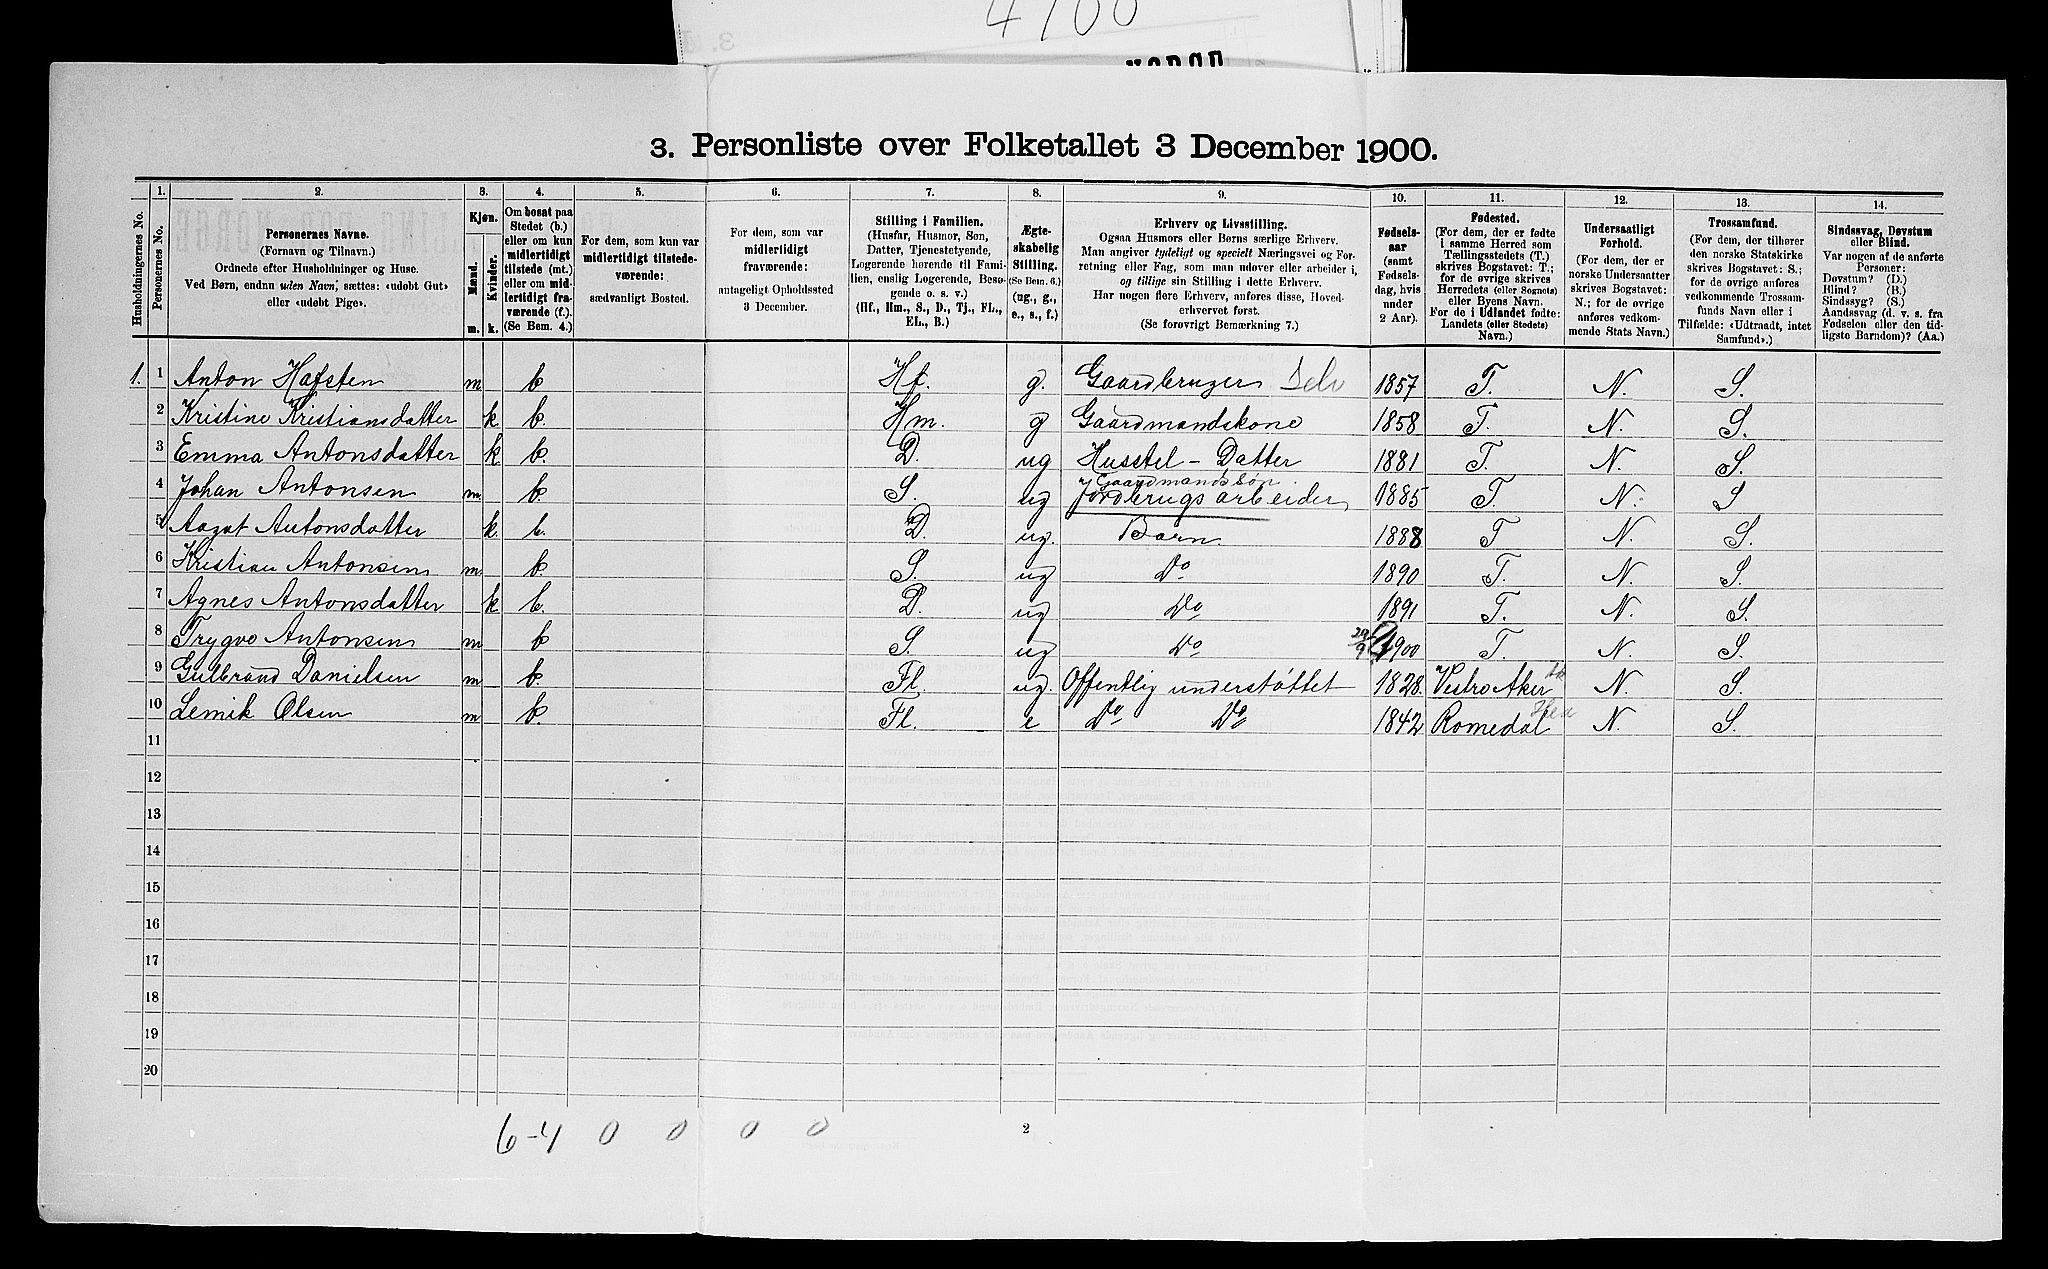 4700
3. Personliste over Folketallet 3 December 1900.
Husholdningernes No.
1.
Personernes No.
2.
Personernes Navne.
(Fornavn og Tilnavn.)
Ordnede efter Husholdninger og Huse.
Ved Børn, endnu uden Navn, sættes: «udøbt Gut»
eller «udøbt Pige».
3.
Kjøn.
Mænd.
Kvinder.
m.
k.
4.
Om bosat paa
Stedet (b.)
eller om kun
midlertidigt
tilstede (mt.)
eller om mid-
lertidigt fra-
værende (f.).
(Se Bem. 4.)
5.
For dem, som kun var
midlertidigt tilstede-
værende:
sædvanligt Bosted.
6.
For dem, som var
midlertidigt
fraværende:
antageligt Opholdssted
3 December.
7.
Stilling i Familien.
(Husfar, Husmor, Søn,
Datter, Tjenestetyende,
Logerende hørende til Fami-
lien, enslig Logerende, Besø-
gende o. s. v.)
(Hf., Hm., S., D., Tj., FL.,
EL., B.)
8.
Ægte-
skabelig
Stilling.
(Se Bem. 6.)
(ug., g.,
e., s., f.)
9.
Erhverv og Livsstilling.
Ogsaa Husmors eller Børns særlige Erhverv.
Man angiver tydeligt og specielt Næringsvei og For-
retning eller Fag, som man udøver eller arbeider i,
og tillige sin Stilling i dette Erhverv.
Har nogen flere Erhverv, anføres disse, Hoved-
erhvervet først.
(Se forøvrigt Bemærkning 7.)
10.
Fødsels-
aar
(samt
Fødsels-
dag, hvis
under
2 Aar).
11.
Fødested.
(For dem, der er fødte
i samme Herred som
Tællingsstedets (T.)
skrives Bogstavet: T.;
for de øvrige skrives
Herredets (eller Sognets)
eller Byens Navn.
For de i Udlandet fødte:
Landets (eller Stedets)
Navn.)
12.
Undersaatligt
Forhold.
(For dem, der er
norske Undersaatter
skrives Bogstavet:
N.; for de øvrige
anføres vedkom-
mende Stats Navn.)
13.
Trossamfund.
(For dem, der tilhører
den norske Statskirke
skrives Bogstavet: S.;
for de øvrige anføres
vedkommende Trossam-
funds Navn eller i
Tilfælde: «Udtraadt, intet
Samfund».)
14.
Sindssvag, Døvstum
eller Blind.
Var nogen af de anførte
Personer:
Døvstum? (D.)
Blind? (B.)
Sindssyg? (S.)
Aandssvag (d. v. s. fra
Fødselen eller den tid-
ligste Barndom)? (Aa.)
1. 1 Anton Hafsten m. b. Hf. g. Gaardbruger Selv 1857 T. N. S.
2 Kristine Kristiansdatter k b. Hm. g Gaardmandskone 1858 T. N. S.
3 Emma Antonsdatter k b. D. ug Husstel - Datter 1881 T. N. S.
4 Johan Antonsen m. b. S. ug Gaardmandssøn Jordbrugsarbeider 1885 T. N. S
5 Aagot Antonsdatter k. b. D. ug. Barn 1888 T N. S.
6 Kristian Antonsen m b. S. ug Do 1890 T. N. S.
7 Agnes Antonsdatter k b. D. ug Do 1891 T. N. S.
8 Trygve Antonsen m b S. ug Do 29/9 1900 T. N. S.
9 Gulbrand Danielsen m b. Fl. ug. Offentlig understøttet 1828. Vestre Aker N. S.
10 Lemik Olsen m b Fl. e Do Do 1842 Romedal Hed N. S.
11
12
13
14
15
16
17
18
19
20
6-4 0 0 0 0
2